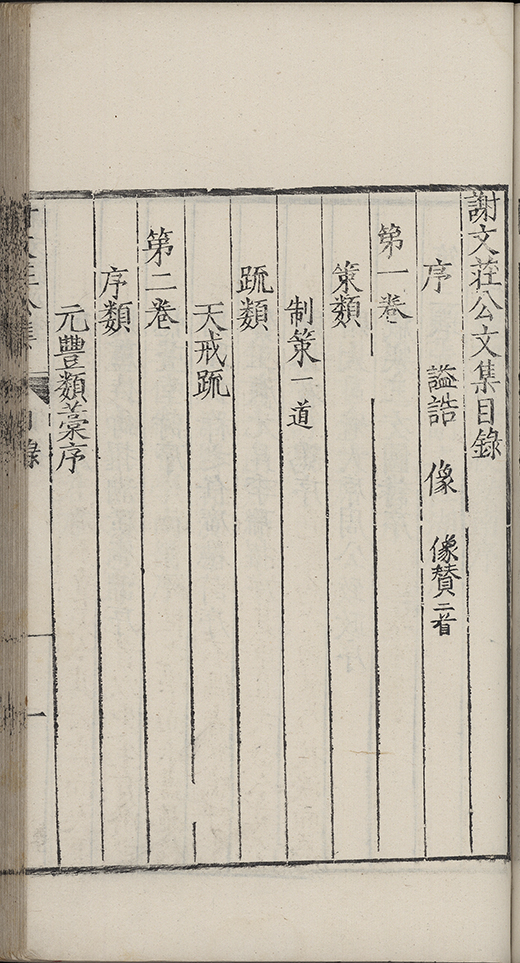 謝文莊公文集目錄
序 謚誥 像 像賛二首
第一卷
策類
制策一道
䟽類
天戒䟽
第二卷
序類
元豐類藁序
目錄
一